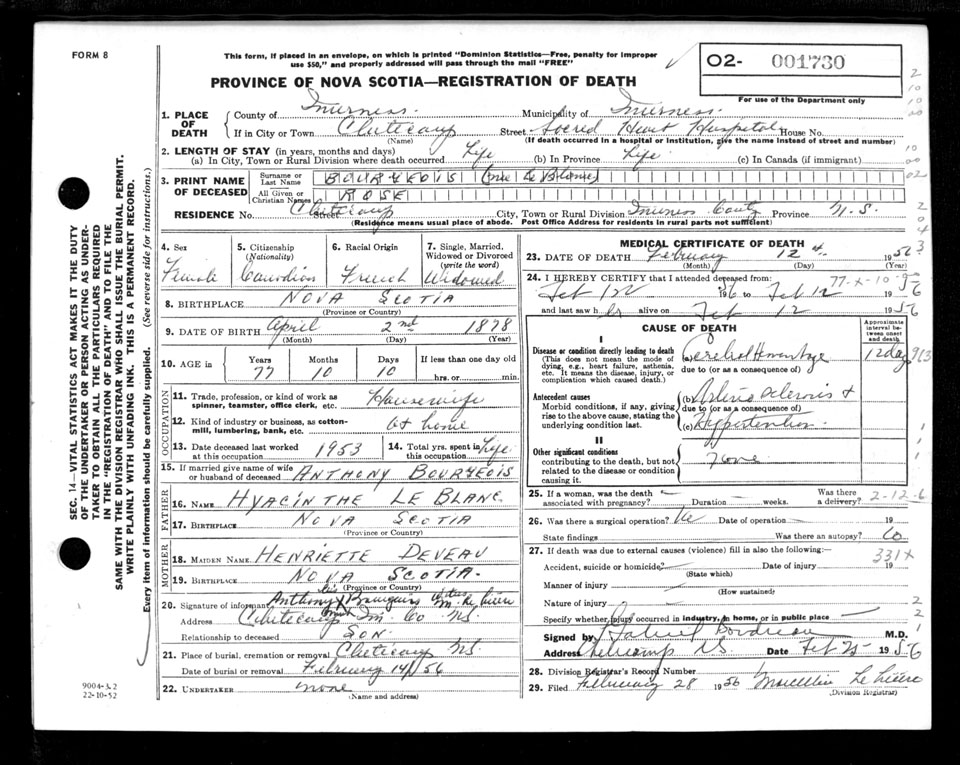 FORM 8
This form, if placed in an envelope, on which is printed "Dominion Statistics—Free, penalty for improper
use $50," and properly addressed will pass through the mail "FREE"
PROVINCE OF NOVA SCOTIA—REGISTRATION OF DEATH
O2- 001730
For use of the Department only
SEC. 14—VITAL STATISTICS ACT MAKES IT THE DUTY
OF THE UNDERTAKER OR PERSON ACTING AS UNDER-
TAKER TO OBTAIN ALL THE PARTICULARS REQUIRED
IN THE "REGISTRATION OF DEATH" AND TO FILE THE
SAME WITH THE DIVISION REGISTRAR WHO SHALL ISSUE THE BURIAL PERMIT.
WRITE PLAINLY WITH UNFADING INK. THIS IS A PERMANENT RECORD.
Every item of information should be carefully supplied. (See reverse side for instructions.)
1. PLACE OF DEATH
County of Inverness Municipality of Inverness
If in City or Town Cheticamp Street Sacred Heart Hospital House No.
(Name) (If death occurred in a hospital or institution, give the name instead of street and number)
2. LENGTH OF STAY (in years, months and days)
(a) In City, Town or Rural Division where death occurred Life (b) In Province Life (c) In Canada (if immigrant)
3. PRINT NAME OF DECEASED
Surname or Last Name BOURGEOIS (nee Le Blanc)
All Given or Christian Names ROSE
RESIDENCE No. Street Cheticamp City, Town or Rural Division Inverness County Province N.S.
(Residence means usual place of abode. Post Office Address for residents in rural parts not sufficient)
4. Sex Female
5. Citizenship (Nationality) Canadian
6. Racial Origin French
7. Single, Married, Widowed or Divorced (write the word) Widowed
8. BIRTHPLACE NOVA SCOTIA
(Province or Country)
9. DATE OF BIRTH April 2nd 1878
(Month) (Day) (Year)
10. AGE in Years 77 Months 10 Days 10 If less than one day old hrs. or min.
OCCUPATION
11. Trade, profession, or kind of work as spinner, teamster, office clerk, etc. Housewife
12. Kind of industry or business, as cotton-mill, lumbering, bank, etc. at home
13. Date deceased last worked at this occupation 1953
14. Total yrs. spent in this occupation Life
15. If married give name of wife or husband of deceased ANTHONY BOURGEOIS
FATHER
16. NAME HYACINTHE LE BLANC
17. BIRTHPLACE NOVA SCOTIA
(Province or Country)
MOTHER
18. MAIDEN NAME HENRIETTE DEVEAU
19. BIRTHPLACE NOVA SCOTIA.
(Province or Country)
20. Signature of informant Anthony his X mark Bourgeois witness M. Le Lièvre
Address Cheticamp In. Co NS.
Relationship to deceased SON.
21. Place of burial, cremation or removal Cheticamp NS.
Date of burial or removal February 14/56
22. UNDERTAKER none
(Name and address)
9004-3.2
22-10-52
MEDICAL CERTIFICATE OF DEATH
23. DATE OF DEATH February 12th 1956
(Month) (Day) (Year)
24. I HEREBY CERTIFY that I attended deceased from: 77-X-10
Feb 1st 1956 to Feb 12 1956
and last saw her alive on Feb 12 1956
CAUSE OF DEATH
Approximate interval between onset and death
I
Disease or condition directly leading to death
(This does not mean the mode of dying, e.g., heart failure, asthenia, etc. It means the disease, injury, or complication which caused death.)
(a) Cerebral Hemorrhage 12 days
due to (or as a consequence of)
Antecedent causes
Morbid conditions, if any, giving rise to the above cause, stating the underlying condition last.
(b) Arterio sclerosis +
due to (or as a consequence of)
(c) Hypertention
II
Other significant conditions
contributing to the death, but not related to the disease or condition causing it.
None
25. If a woman, was the death associated with pregnancy? Duration weeks. Was there a delivery? 2-12-6
26. Was there a surgical operation? No Date of operation 19
State findings Was there an autopsy? No
27. If death was due to external causes (violence) fill in also the following:— 331X
Accident, suicide or homicide? Date of injury 19
(State which)
Manner of injury
(How sustained)
Nature of injury
Specify whether injury occurred in industry, in home, or in public place
Signed by Gabriel Boudreau M.D.
Address Cheticamp N.S. Date Feb 25 1956
28. Division Registrar's Record Number
29. Filed February 28 1956 Marcellin Le Lièvre
(Division Registrar)